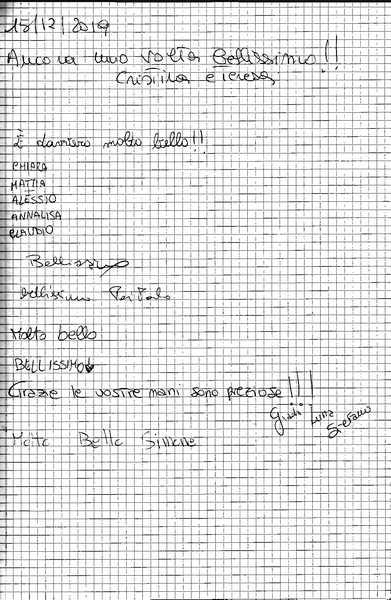 15/12/2019
Ancora una volta Bellissimo!!
Cristina e Teresa
È davvero molto bello!!
CHIARA
MATTIA
ALESSIO
ANNALISA
CLAUDIO
Bellissimo
bellissimo
Molto bello
BELLISSIMO
Grazie le vostre mani sono preziose!!!
Giudi Luna Stefano
Molto Bello Simone